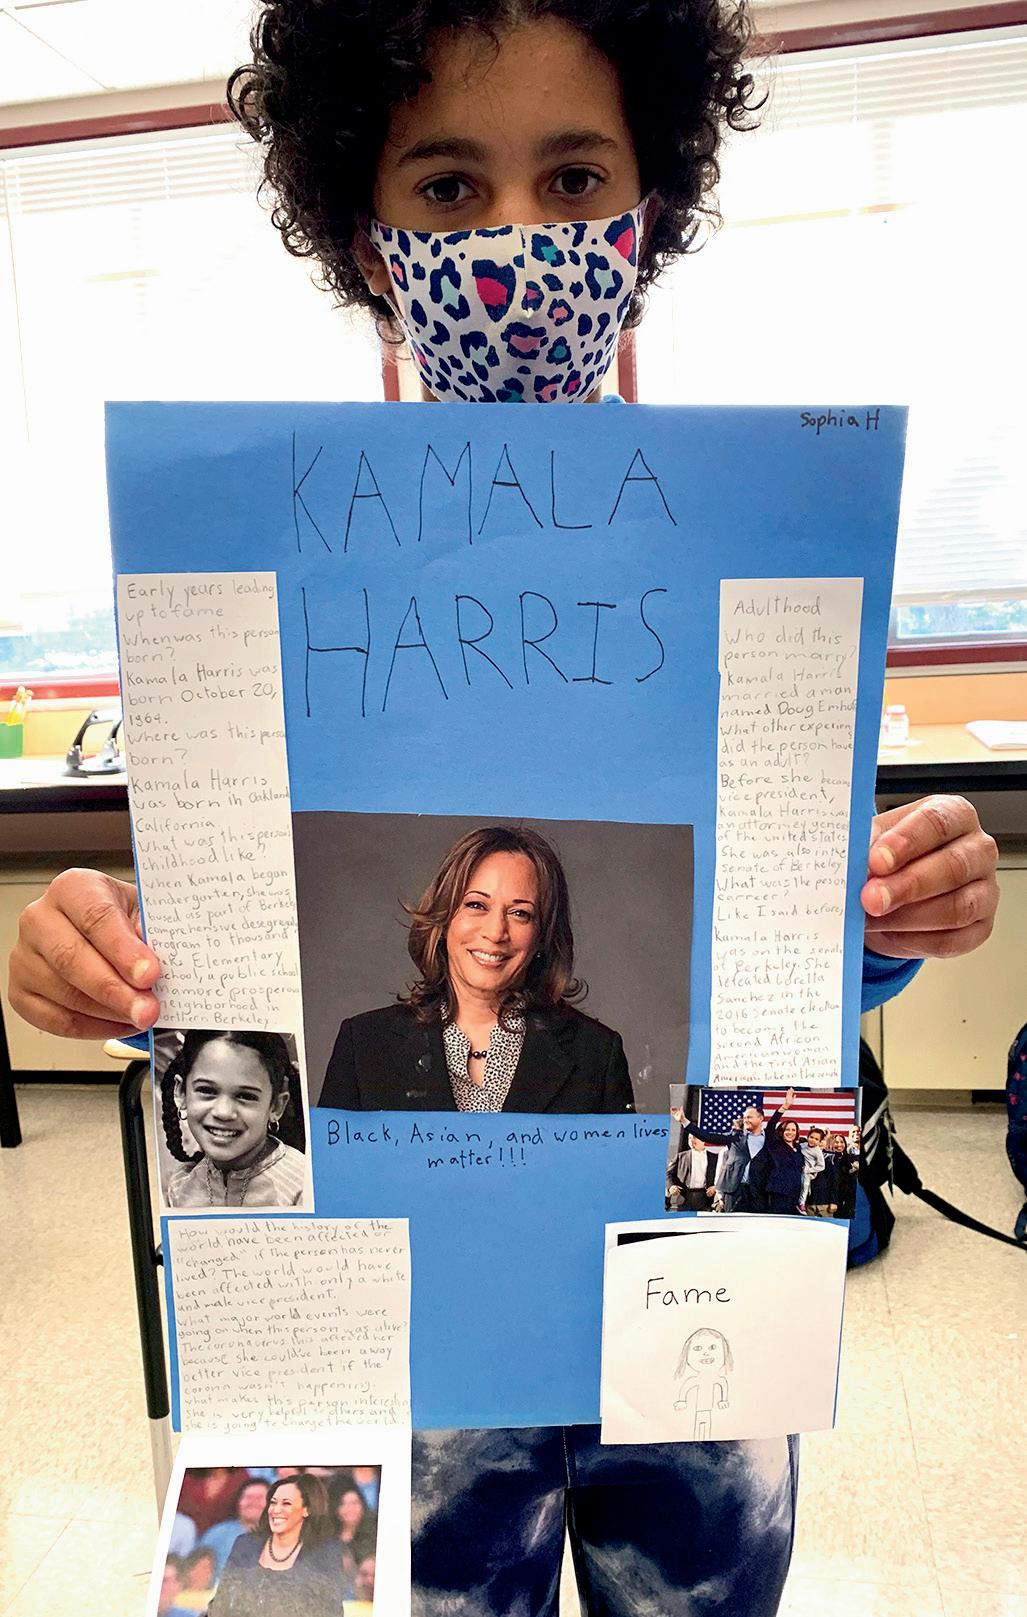 Sophia H
KAMALA
HARRIS
Early years leading
up to fame
When was this person
born?
Kamala Harris was
born October 20,
1964.
Where was this perso
born?
Kamala Harris
was born in Oakland
California.
What was this persons
childhood like?
When Kamala began
Kindergarten, she was
bused as part of Berkel
comprehensive desegrega
program to thousand
Elementary
School, a public school
in a more prosperous
neighborhood in
northern Berkeley.
Adulthood
Who did this
person marry?
Kamala Harris
married a man
named Doug Emhof
What other experien
did the person have
as an adult?
Before she became
vice president,
Kamala Harris was
an attorney genera
of the united states.
She was also in the
senate of Berkeley
What was the person
carreer?
Like I said before,
Kamala Harris
was on the senate
of Berkeley. She
defeated Loretta
Sanchez in the
2016 Senate election
to become the
second African
American woman
and the first Asian
American to be in the senate
Black, Asian, and women lives
matter!!!
How would the history of the
world have been affected or
"changed" if the person has never
lived? The world would have
been affected with only a white
and male vice president.
What major world events were
going on when this person was alive?
The coronavirus this affected her
because she could've been a way
better vice president if the
corona wasn't happening.
what makes this person interestin
She is very helpful to others and
she is going to change the world.
Fame